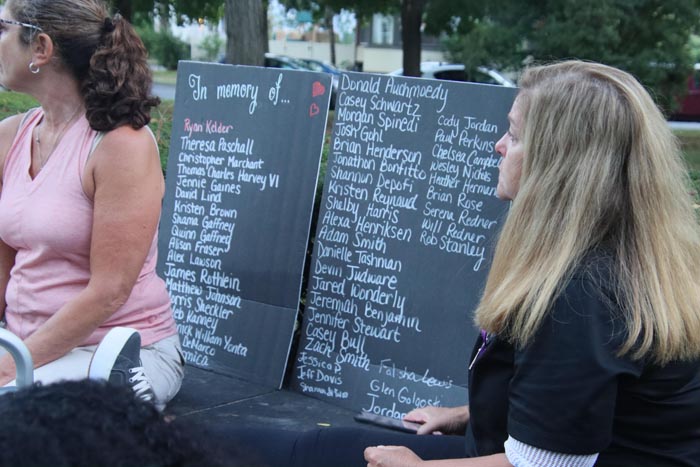 In memory of...
Ryan Kelder
Theresa Paschall
Christopher Marchant
Thomas Charles Harvey VI
Jennie Gaines
David Lind
Kristen Brown
Shama Gaffney
Quinn Gaffney
Alison Fraser
Alex Lawson
James Rothein
Matthew Johnson
orris Sheckler
eb Kanney
nick William Yonta
DeMarco
nica
Donald Auchmoedy
Casey Schwartz
Morgan Spinedi
Josh Gahl
Brian Henderson
Jonathon Bonfitto
Shannon Depofi
Kristen Reynaud
Shelby Harris
Alexa Henriksen
Adam Smith
Danielle Tashman
Devin Judware
Jared Wonderly
Jeremiah Benjamin
Jennifer Stewart
Casey Bull
Zack Smith
Jessica P
Jeff Davis
Cody Jordan
Paul Perkins
Chelsea Campbel
Wesley Nichols
Heather Herman
Brian Rose
Serena Redner
Will Redner
Rob Stanley
Falisha Lewis
Glen
Jordan